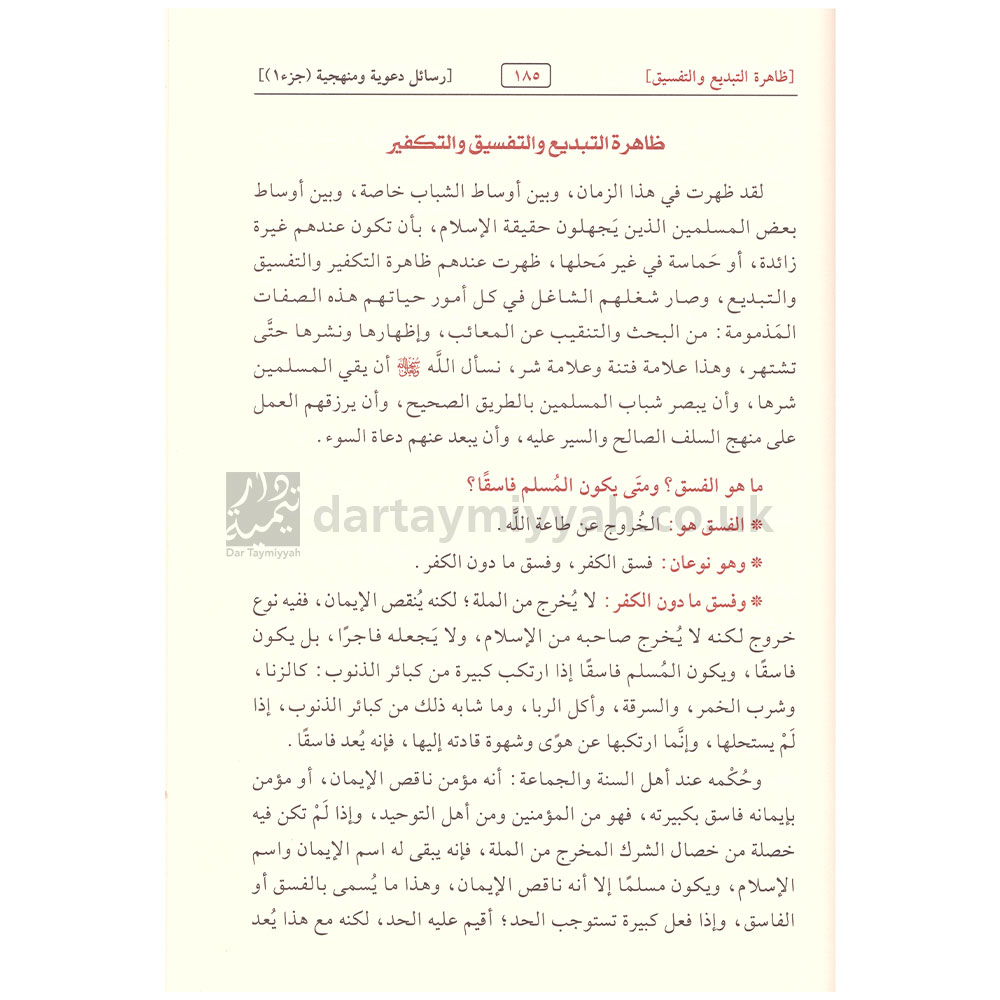 [ظاهرة التبديع والتفسيق] ١٨٥ [رسائل دعوية ومنهجية (جزء١)]
ظاهرة التبديع والتفسيق والتكفير
لقد ظهرت في هذا الزمان، وبين أوساط الشباب خاصة، وبين أوساط
بعض المسلمين الذين يَجهلون حقيقة الإسلام، بأن تكون عندهم غيرة
زائدة، أو حَماسة في غير مَحلها، ظهرت عندهم ظاهرة التكفير والتفسيق
والتبديع، وصار شغلهم الشاغل في كل أمور حياتهم هذه الصفات
المَذمومة: من البحث والتنقيب عن المعائب، وإظهارها ونشرها حتَّى
تشتهر، وهذا علامة فتنة وعلامة شر، نسأل اللَّه أن يقي المسلمين
شرها، وأن يبصر شباب المسلمين بالطريق الصحيح، وأن يرزقهم العمل
على منهج السلف الصالح والسير عليه، وأن يبعد عنهم دعاة السوء.
ما هو الفسق؟ ومتَى يكون المُسلم فاسقًا؟
دار تيمية
Dar Taymiyyah
dartaymiyyah.co.uk
* الفسق هو: الخُروج عن طاعة اللَّه.
* وهو نوعان: فسق الكفر، وفسق ما دون الكفر.
* وفسق ما دون الكفر: لا يُخرج من الملة؛ لكنه يُنقص الإيمان، ففيه نوع
خروج لكنه لا يُخرج صاحبه من الإسلام، ولا يَجعله فاجرًا، بل يكون
فاسقًا، ويكون المُسلم فاسقًا إذا ارتكب كبيرة من كبائر الذنوب: كالزنا،
وشرب الخمر، والسرقة، وأكل الربا، وما شابه ذلك من كبائر الذنوب، إذا
لَمْ يستحلها، وإنَّما ارتكبها عن هوًى وشهوة قادته إليها، فإنه يُعد فاسقًا.
وحُكْمه عند أهل السنة والجماعة: أنه مؤمن ناقص الإيمان، أو مؤمن
بإيمانه فاسق بكبيرته، فهو من المؤمنين ومن أهل التوحيد، وإذا لَمْ تكن فيه
خصلة من خصال الشرك المخرج من الملة، فإنه يبقى له اسم الإيمان واسم
الإسلام، ويكون مسلمًا إلا أنه ناقص الإيمان، وهذا ما يُسمى بالفسق أو
الفاسق، وإذا فعل كبيرة تستوجب الحد؛ أقيم عليه الحد، لكنه مع هذا يُعد